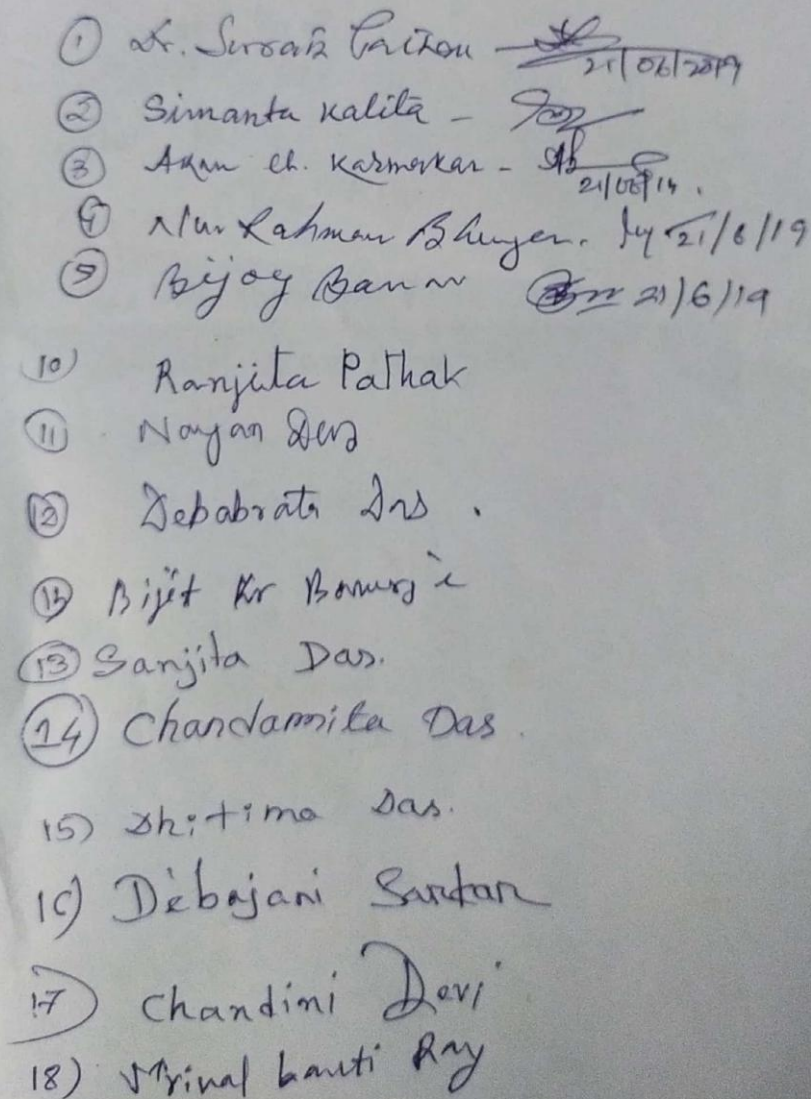 ① Dr. 21/06/2019
② Simanta Kalita -
③ Ch. Karmakar - 21/06/19.
④ Nur Rahman Bhuyan. 21/6/19
⑤ Bijoy 21/6/19
10) Ranjita Pathak
⑪ Nayan
⑫ Debabrata Das.
Bijit Kr
⑬ Sanjita Das.
⑭ Chandamita Das.
15) Dhitima Das.
16) Debajani Sarkar
17) Chandini Devi
18) Mrinal kanti Ray